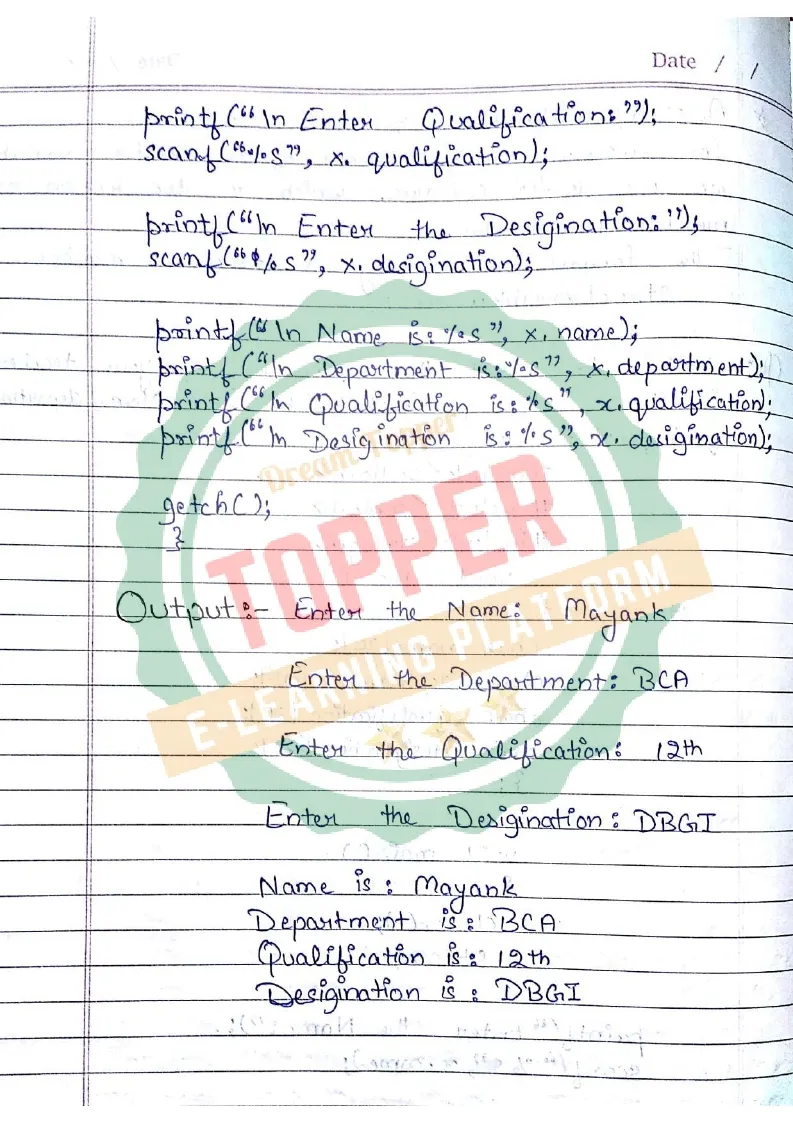 Date / /
printf(“\n Enter Qualification:”);
scanf(“%s”, x. qualification);
printf(“\n Enter the Desigination:”);
scanf(“%s”, x. desigination);
printf(“\n Name is: %s”, x. name);
printf(“\n Department is: %s”, x. department);
printf(“\n Qualification is: %s”, x. qualification);
printf(“\n Desigination is: %s”, x. desigination);
Dream Topper
getch();
}
TOPPER
E-LEARNING PLATFORM
Output:- Enter the Name: Mayank
Enter the Department: BCA
Enter the Qualification: 12th
Enter the Desigination: DBGI
Name is: Mayank
Department is: BCA
Qualification is: 12th
Desigination is: DBGI